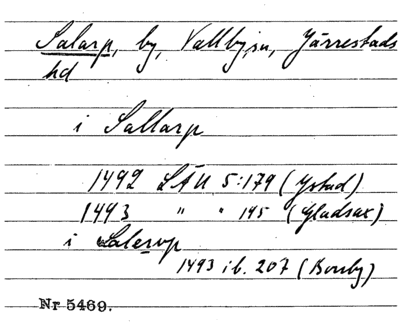 Salarp, by, Vallby sn, Järrestads
hd
i Sallarp
1492 LÄU 5:179 (Ystad)
1493 " " 195 (Gladsax)
i Salerup
1493 ib. 207 (Borrby)
Nr 5469.